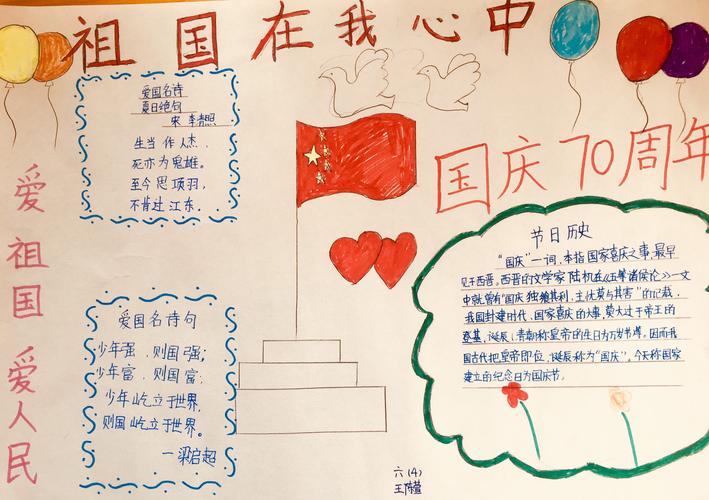 祖国在我心中
爱国名诗
夏日绝句
宋 李清照
生当作人杰.
死亦为鬼雄.
至今思项羽,
不肯过江东.
国庆70周年
爱祖国 爱人民
节日历史
"国庆"一词,本指国家喜庆之事,最早
见于西晋。西晋的文学家陆机在《五等诸侯论》一文
中就曾有"国庆独飨其利,主忧莫与其害"的记载.
我国封建时代、国家喜庆的大事,莫大过于帝王的
登基,诞辰(清朝称皇帝的生日为万岁节等。因而我
国古代把皇帝即位、诞辰称为"国庆"。今天称国家
建立的纪念日为国庆节。
爱国名诗句
少年强,则国强;
少年富,则国富;
少年屹立于世界,
则国屹立于世界。
一梁启超
六(4)
王